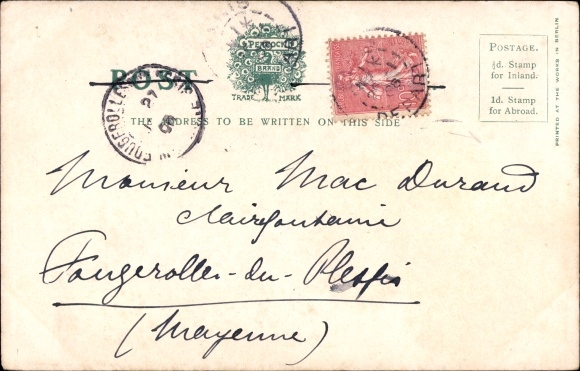 POST
PEACOCK
BRAND
TRADE MARK
THE ADDRESS TO BE WRITTEN ON THIS SIDE
POSTAGE.
½d. Stamp
for Inland.
1d. Stamp
for Abroad.
PRINTED AT THE WORKS IN BERLIN
FOUGEROLLES
27
Monsieur Mac Durand
Clairfontaine
Fougerolles-du-Plessis
(Mayenne)